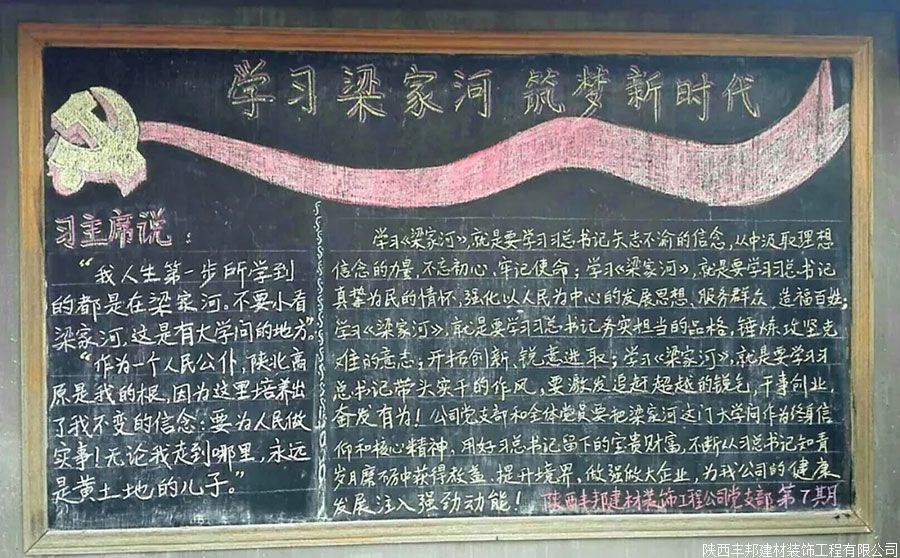 学习梁家河 筑梦新时代
习主席说：
“我人生第一步所学到
的都是在梁家河。不要小看
梁家河,这是有大学问的地方”。
“作为一个人民公仆,陕北高
原是我的根,因为这里培养出
了我不变的信念:要为人民做
实事!无论我走到哪里,永远
是黄土地的儿子。”
学习《梁家河》,就是要学习习总书记矢志不渝的信念,从中汲取理想
信念的力量,不忘初心,牢记使命;学习《梁家河》,就是要学习习总书记
真挚为民的情怀,强化以人民为中心的发展思想、服务群众、造福百姓;
学习《梁家河》,就是要学习习总书记务实担当的品格,锤炼攻坚克
难的意志,开拓创新、锐意进取;学习《梁家河》,就是要学习习
总书记带头实干的作风,要激发追赶超越的锐气,干事创业,
奋发有为!公司党支部和全体党员要把梁家河这门大学问作为终身信
仰和核心精神,用好习总书记留下的宝贵财富,不断从习总书记知青
岁月磨砺中获得教益、提升境界,做强做大企业,为我公司的健康
发展注入强劲动能!
陕西丰邦建材装饰工程公司党支部 第7期
陕西丰邦建材装饰工程有限公司